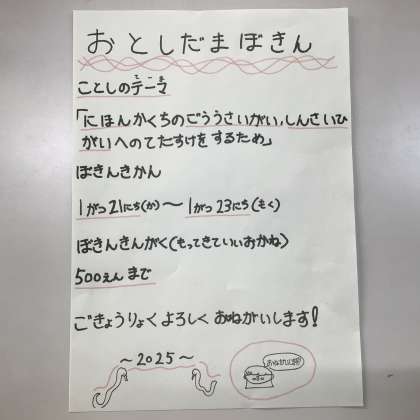 おとしだまぼきん
ことしのテーマ
「にほんかくちのごううさいがい、しんさいひ
がいへのてだすけをするため」
ぼきんきかん
1がつ21にち(か)〜1がつ23にち(もく)
ぼきんきんがく(もってきていいおかね)
500えんまで
ごきょうりょくよろしくおねがいします!
〜2025〜